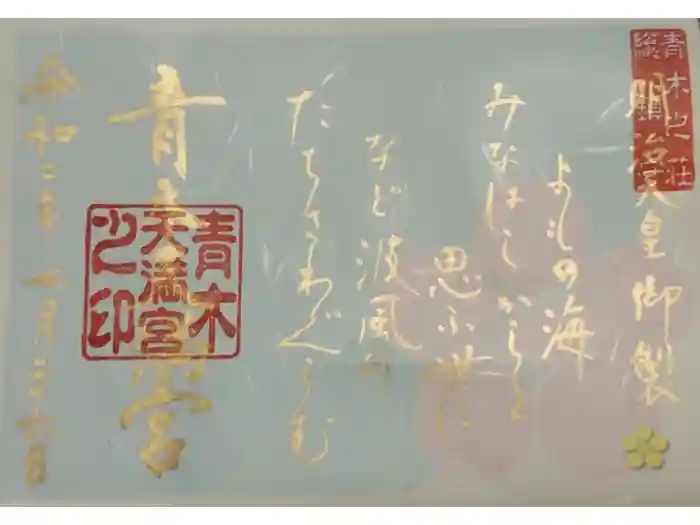 青木之荘
総鎮守
明治天皇御製
よもの海
みなはらからと
思ふ世に
など波風の
たちさわぐらむ
青木天満宮
青木
天満宮
之印
令和二年七月二十六日